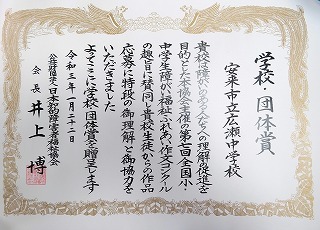 学校・団体賞
安来市立広瀬中学校
貴校は障がいのある人たちへの理解の促進を
目的とした本協会主催の第七回全国小・
中学生障がい福祉ふれあい作文コンクール
の趣旨に賛同し貴校生徒からの作品
応募に特段の御理解と御協力を
いただきました
よってここに学校・団体賞を贈呈します
令和三年一月二十二日
公益財団法人日本知的障害者福祉協会
会長 井上 博